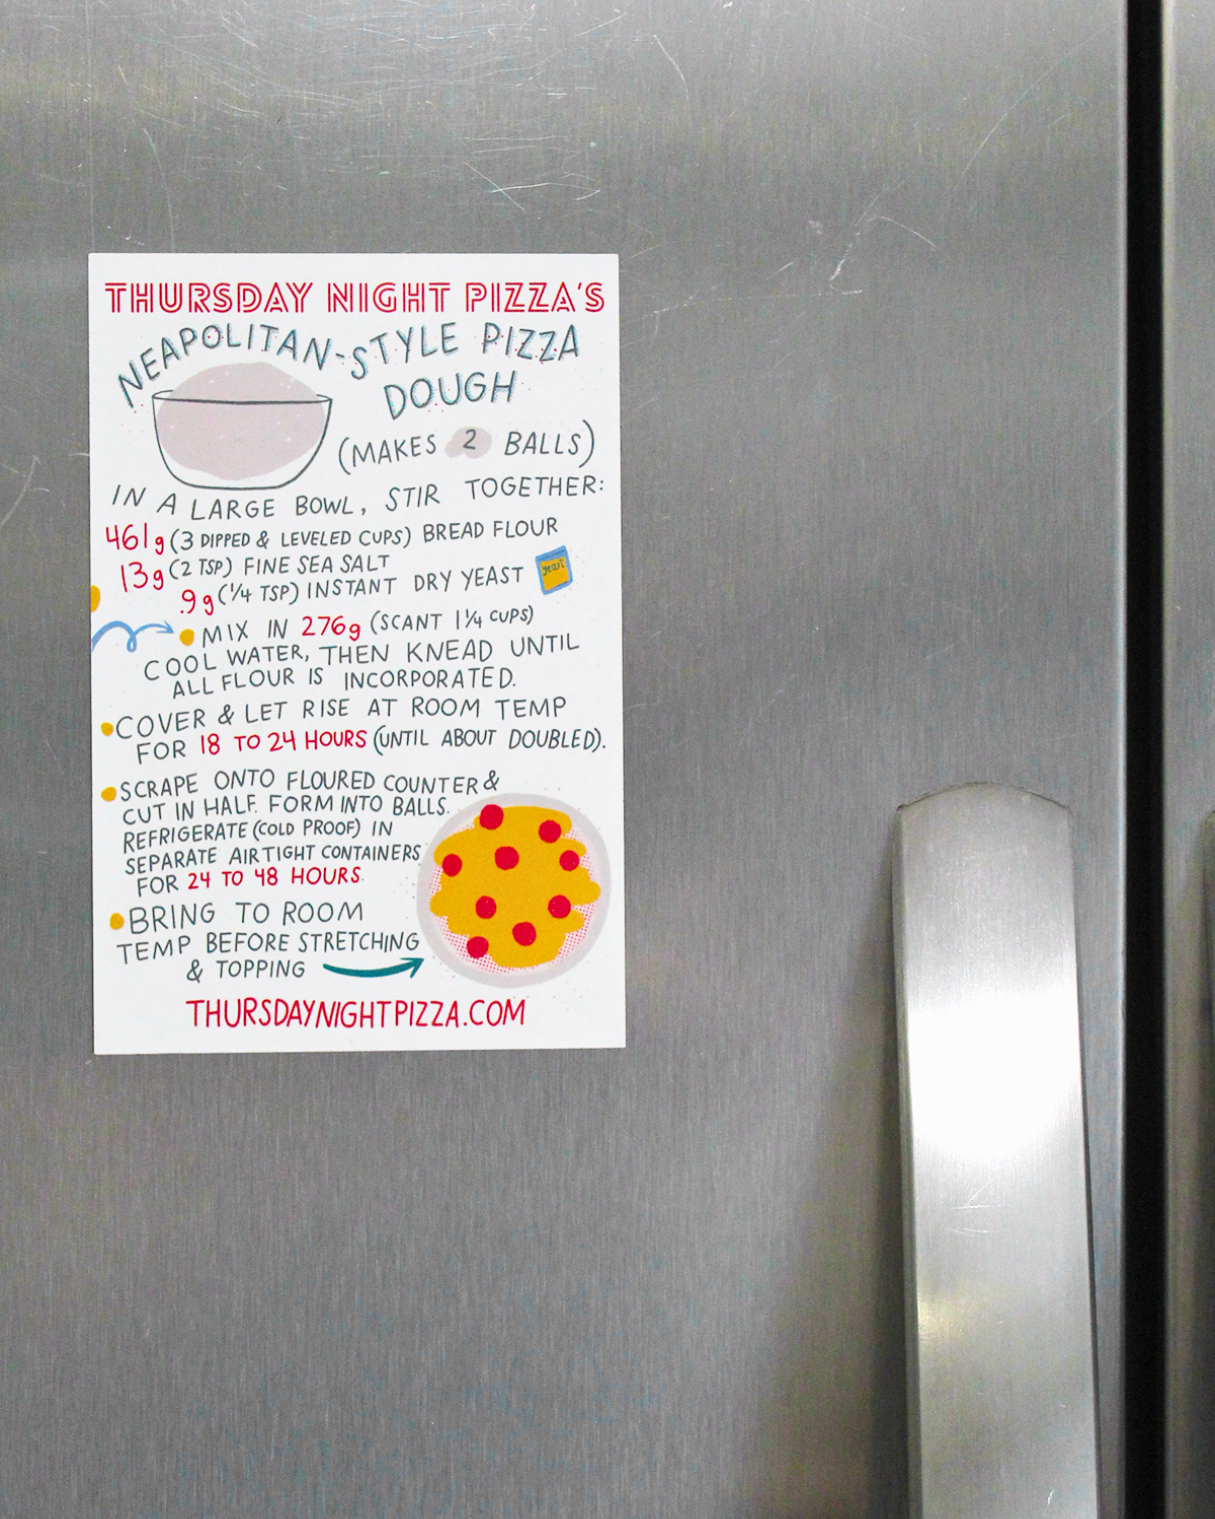 THURSDAY NIGHT PIZZA'S
NEAPOLITAN-STYLE PIZZA
DOUGH
(MAKES 2 BALLS)
IN A LARGE BOWL, STIR TOGETHER:
461g (3 DIPPED & LEVELED CUPS) BREAD FLOUR
13g (2 TSP) FINE SEA SALT
.9g (1/4 TSP) INSTANT DRY YEAST
yeast
MIX IN 276g (SCANT 1 1/4 CUPS)
COOL WATER, THEN KNEAD UNTIL
ALL FLOUR IS INCORPORATED.
COVER & LET RISE AT ROOM TEMP
FOR 18 TO 24 HOURS (UNTIL ABOUT DOUBLED).
SCRAPE ONTO FLOURED COUNTER &
CUT IN HALF. FORM INTO BALLS.
REFRIGERATE (COLD PROOF) IN
SEPARATE AIRTIGHT CONTAINERS
FOR 24 TO 48 HOURS.
BRING TO ROOM
TEMP BEFORE STRETCHING
& TOPPING
THURSDAYNIGHTPIZZA.COM